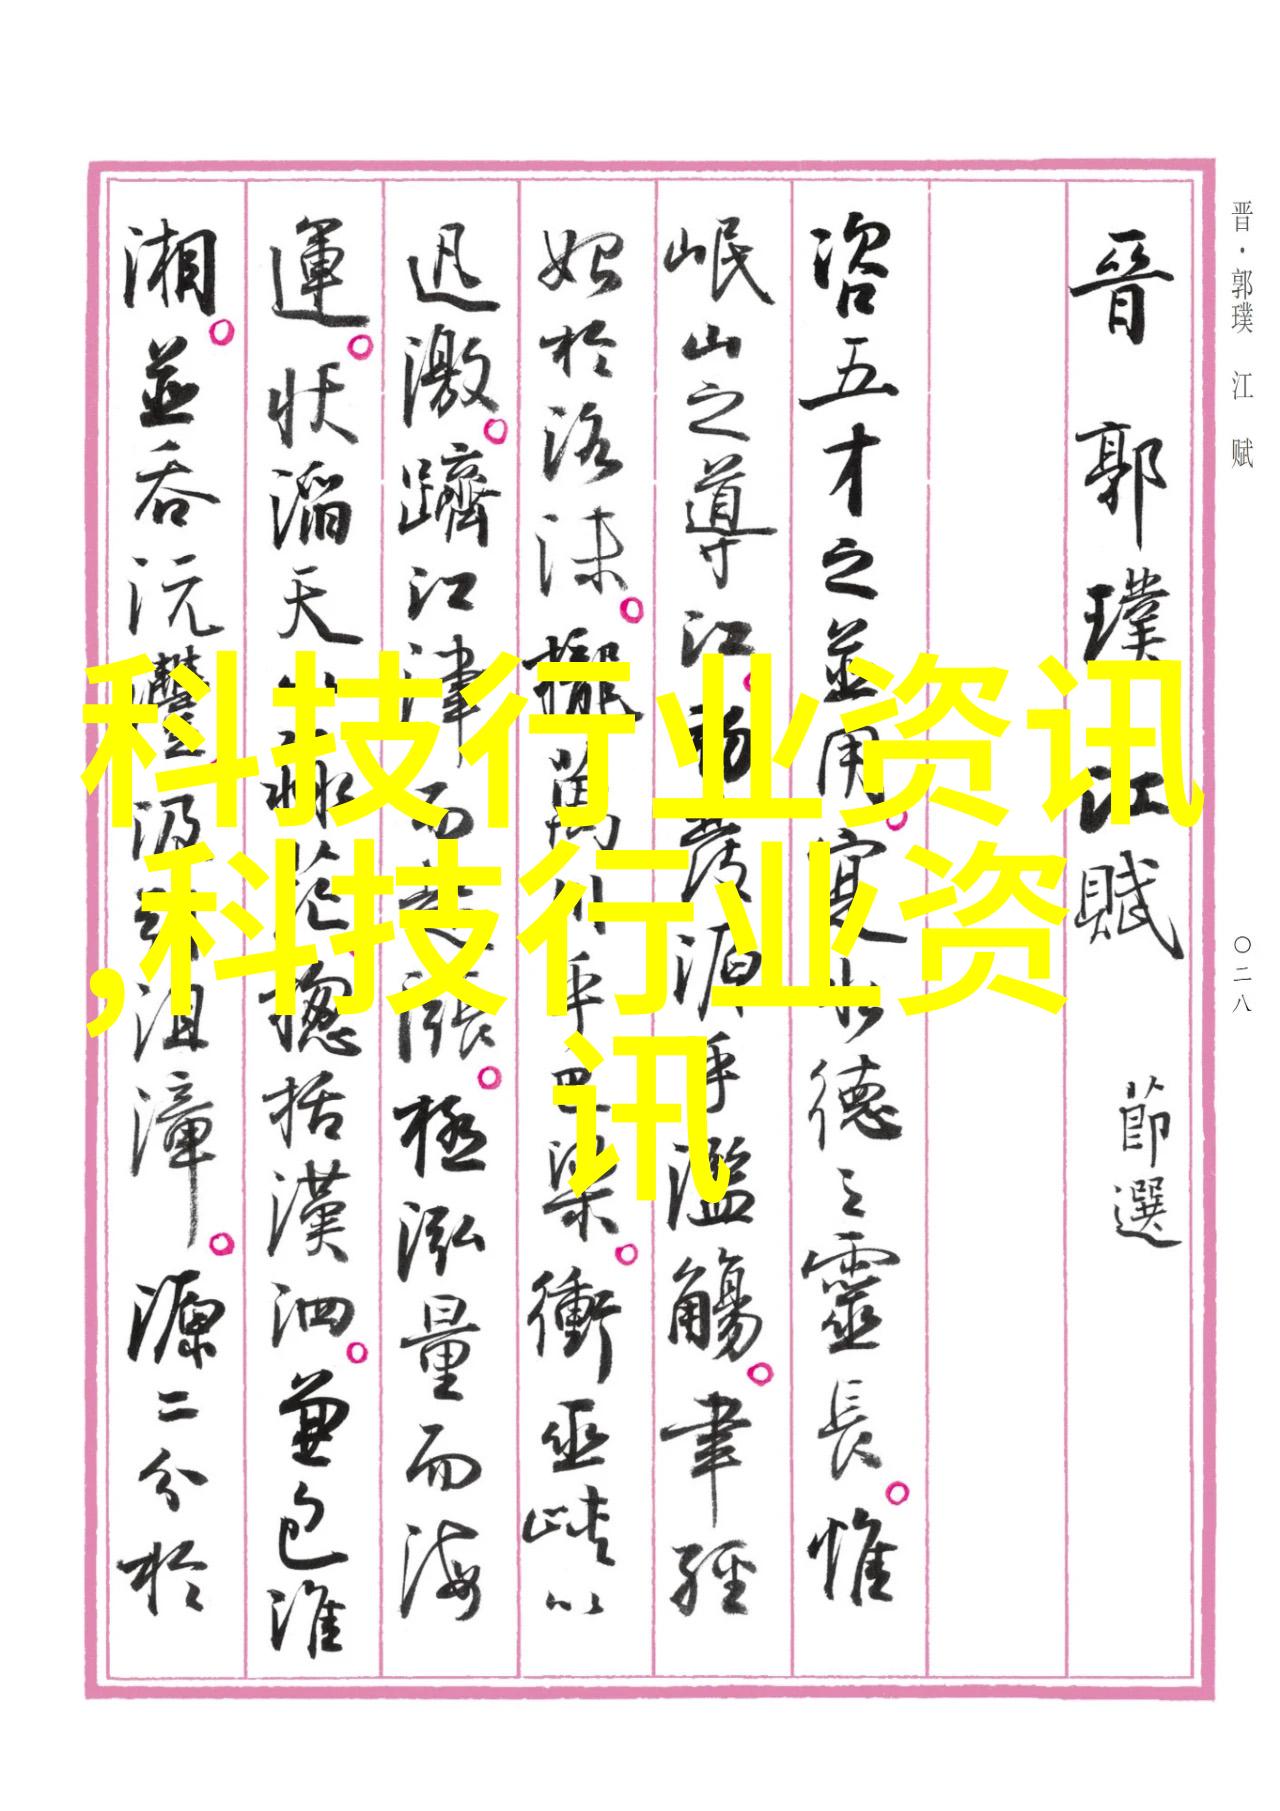 晋·郭璞 江 赋
〇二八
晉 郭璞江賦 節選
咨五才之並用。寔水德之靈長。惟
岷山之導江。初發源乎濫觴。聿經
始於洛沬。攏萬川乎巴梁。衝巫峽以
迅激。躋江津而起漲。極泓量而海
運。狀滔天以淼茫。揔括漢泗。兼包淮
湘。並吞沅澧。汲引沮漳。源二分於
科技行业资讯
,科技行业资
讯